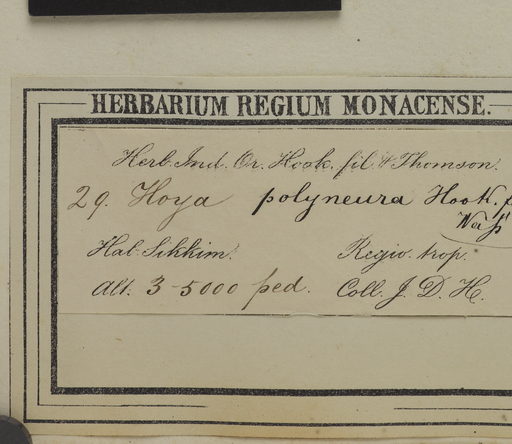 HERBARIUM REGIUM MONACENSE.
Herb. Ind. Or. Hook. fil. & Thomson.
29. Hoya polyneura Hook. f
Hab. Sikkim. Regio trop.
Alt. 3-5000 ped. Coll. J. D. H.